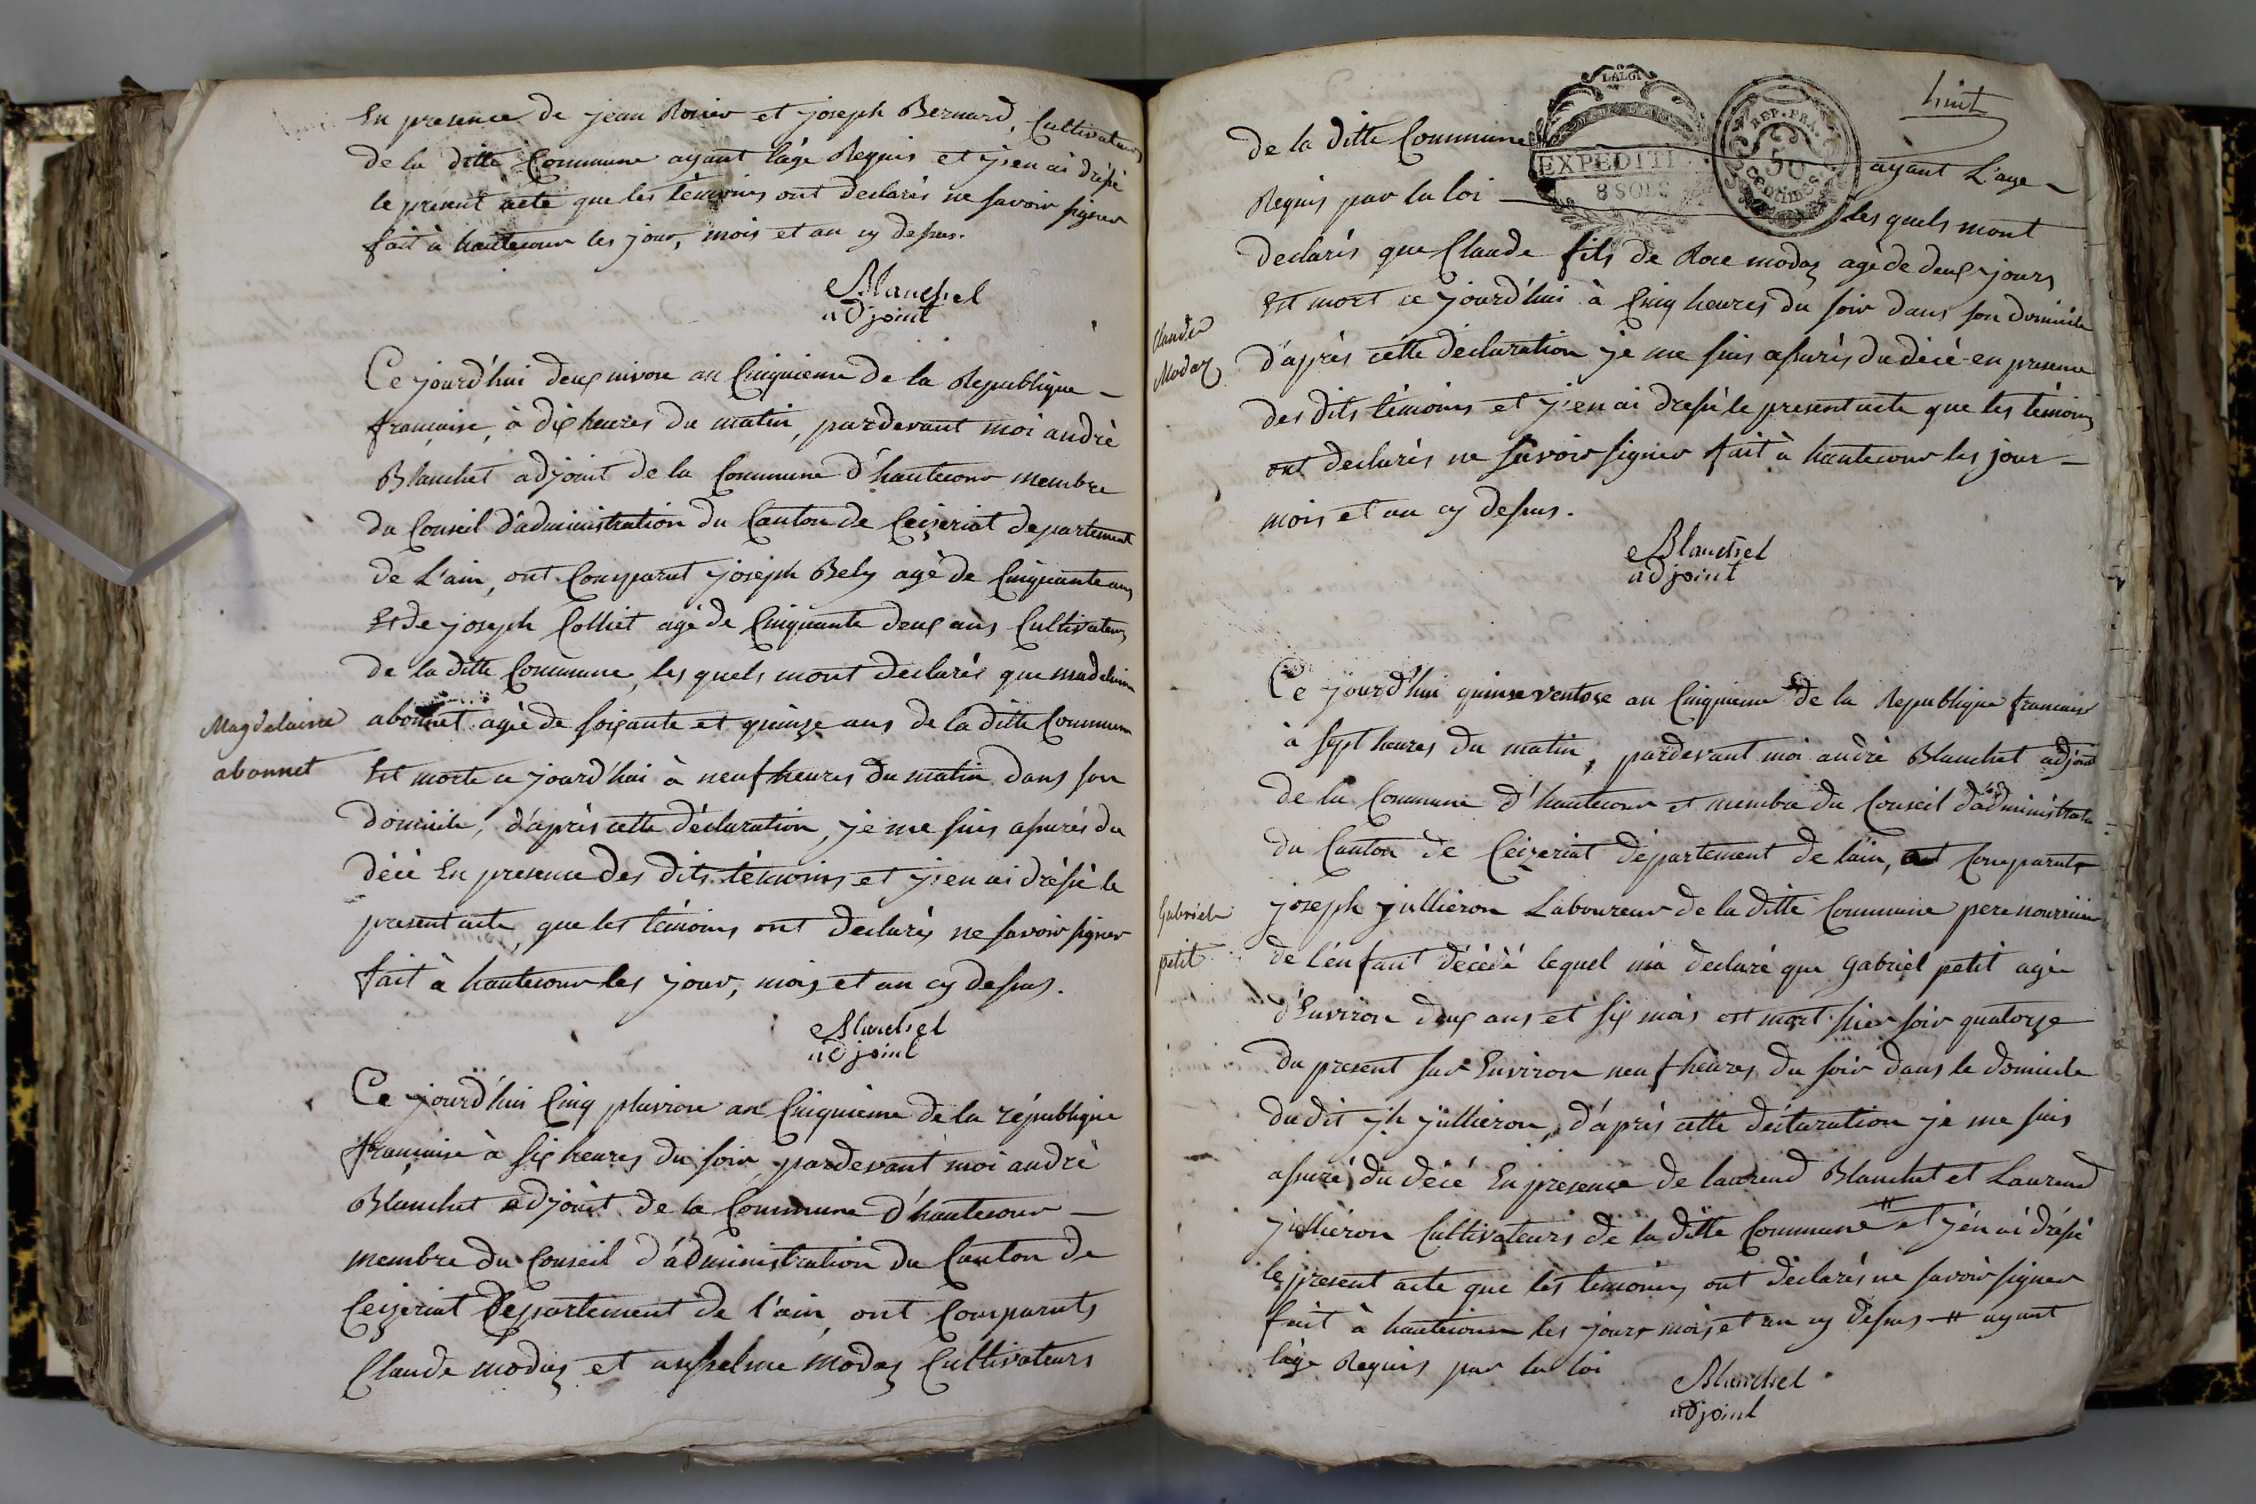 En presence de jean Rosier et joseph Bernard, Cultivateurs
de la ditte Commune ayant lâge Requis et j'en ai dressé
le present acte que les témoins ont declarés ne savoir signer
fait à hautecour les jour, mois et an cy dessus.
Blanchet
adjoint
Ce jourd'hui deux nivose an Cinquieme de la Republique
francaise, à dix heures du matin, pardevant moi andré
Blanchet adjoint de la Commune d'hautecour membre
du Conseil d'administration du Canton de Ceizeriat departement
de L'ain, ont Comparut joseph Bely agé de Cinquante ans
Et de joseph Colliet agé de Cinquante deux ans Cultivateurs
de la ditte Commune, les quels mont declarés que madelaine
Magdelaine
abonnet
abonnet agée de soixante et quinze ans de la ditte Commune
Est morte ce jourd'hui à neuf heures du matin dans son
domicile, d'après cette déclaration, je me suis assurés du
décé En presence des dits témoins et j'en ai dréssé le
present acte, que les témoins ont déclarés ne savoir signer
fait à hautecour les jour, mois et an cy dessus.
Blanchet
adjoint
Ce jourd'hui Cinq pluviose an Cinquieme de la république
francaise à six heures du soir, pardevant moi andré
Blanchet adjoint de la Commune d'hautecour
membre du Conseil d'administration du Canton de
Ceizeriat Departement de l'ain, ont Comparuts
Claude modaz et ansselme modaz Cultivateurs
huit
LALGI
EXPEDITI
8 SOLS
REP. FRA.
50
CENTIMES
de la ditte Commune ayant L'age
Requis par la loi les quels mont
declarés que Claude fils de Roce modaz agé de deux jours
Est mort ce jourd'hui à Cinq heures du soir dans son domicile
Claude
Modaz
d'après cette declaration je me suis assurés du décé en presence
des dits témoins et j'en ai dressé le present acte que les témoins
ont declarés ne savoir signer fait à hautecour les jour
mois et an cy dessus.
Blanchet
adjoint
Ce jourd'hui quinse ventose an Cinquieme de la Republique francaise
à sept heures du matin, pardevant moi andré Blanchet adjoint
de la Commune d'hautecour et membre du Conseil d'administration
du Canton de Ceizeriat département de lain, ont Comparuts
Gabriel
petit
joseph jullieron Laboureur de la ditte Commune pere nourricier
de l'enfant décédé lequel m'a declaré que gabriel petit agé
d'Environ deux ans et six mois est mort hier soir quatorze
du present sur Environ neuf heures du soir dans le domicile
dudit jh jullieron, d'après cette déclaration je me suis
assuré du décé En presence de laurend Blanchet et Laurend
jullieron Cultivateurs de la ditte Commune # et j'en ai dréssé
le present acte que les temoins ont déclarés ne savoir signer
fait à hautecour les jours mois et an cy dessus # ayant
lâge Requis par la loi
Blanchet
adjoint